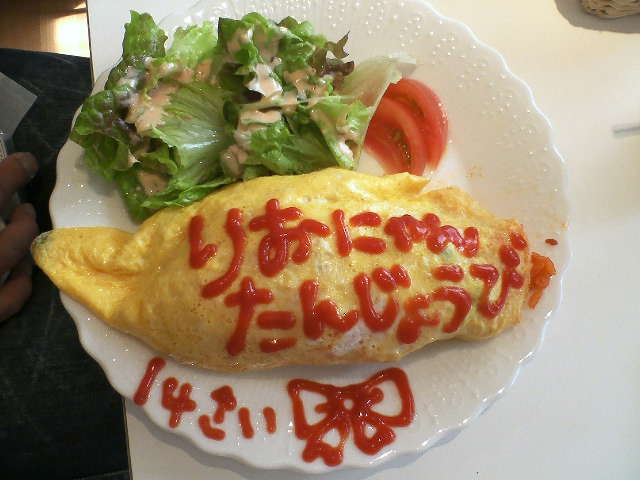 りおにゃん
たんじょうび
14さい